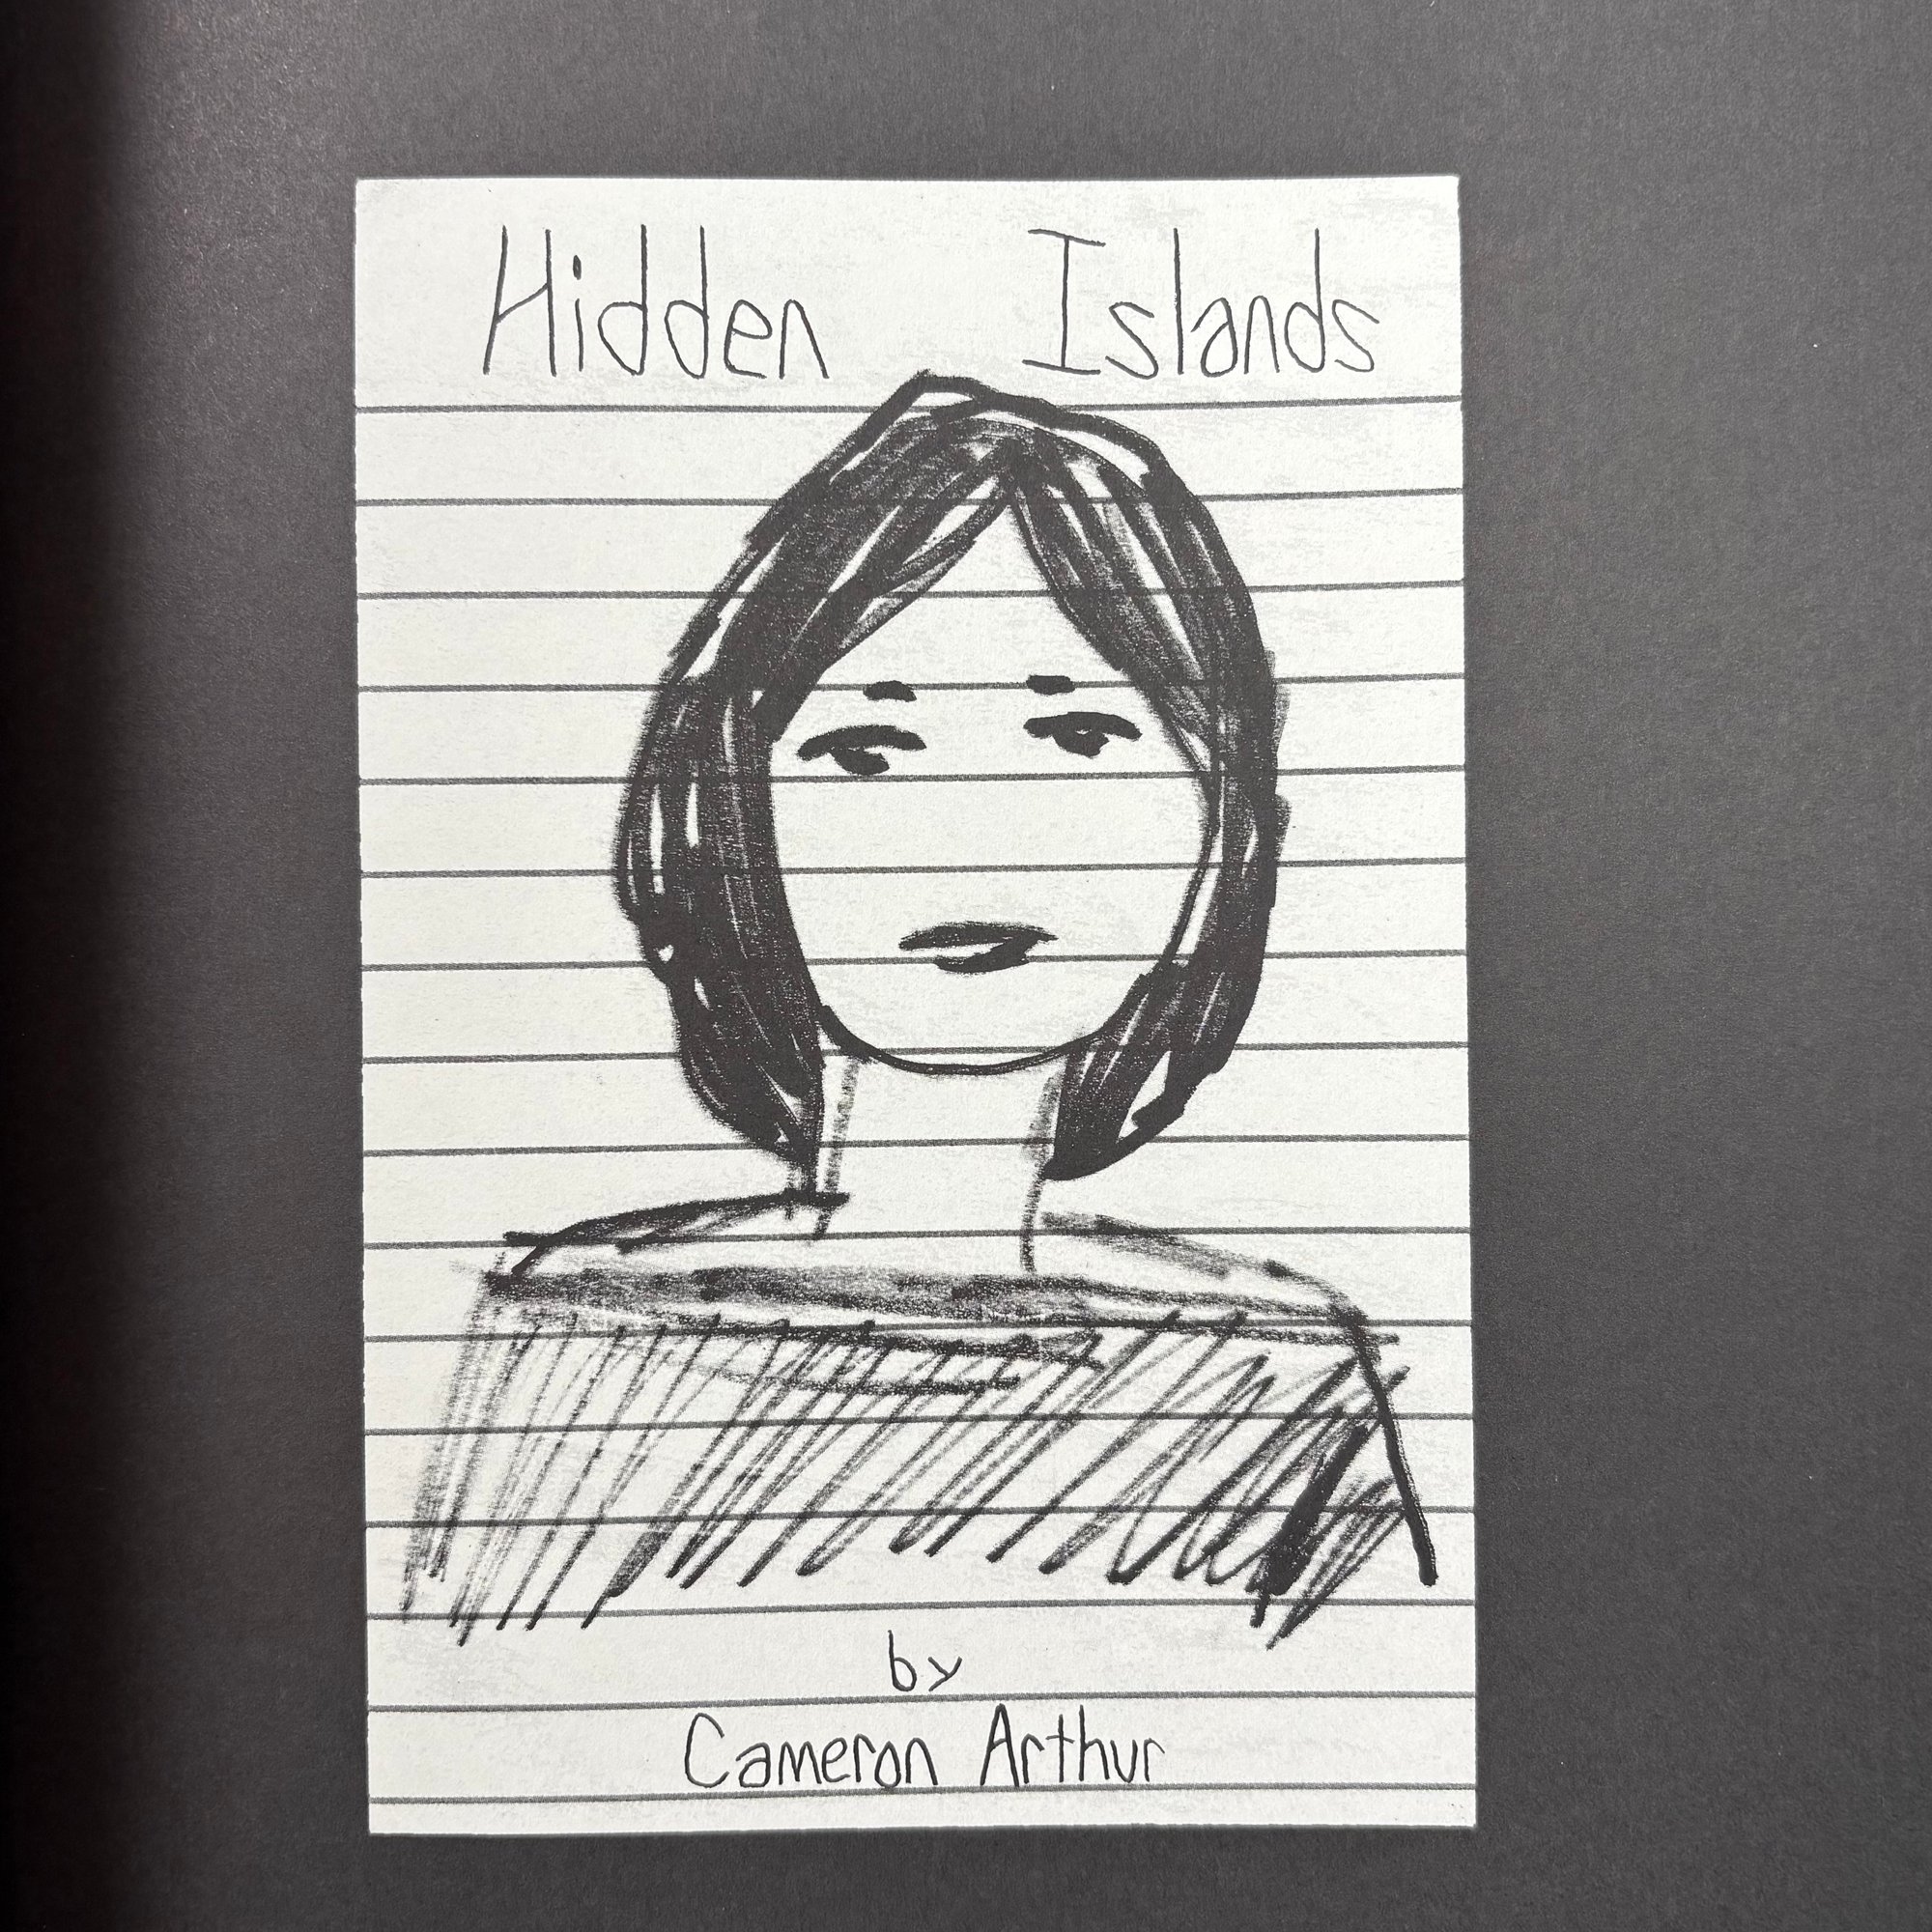 Hidden Islands
by
Cameron Arthur